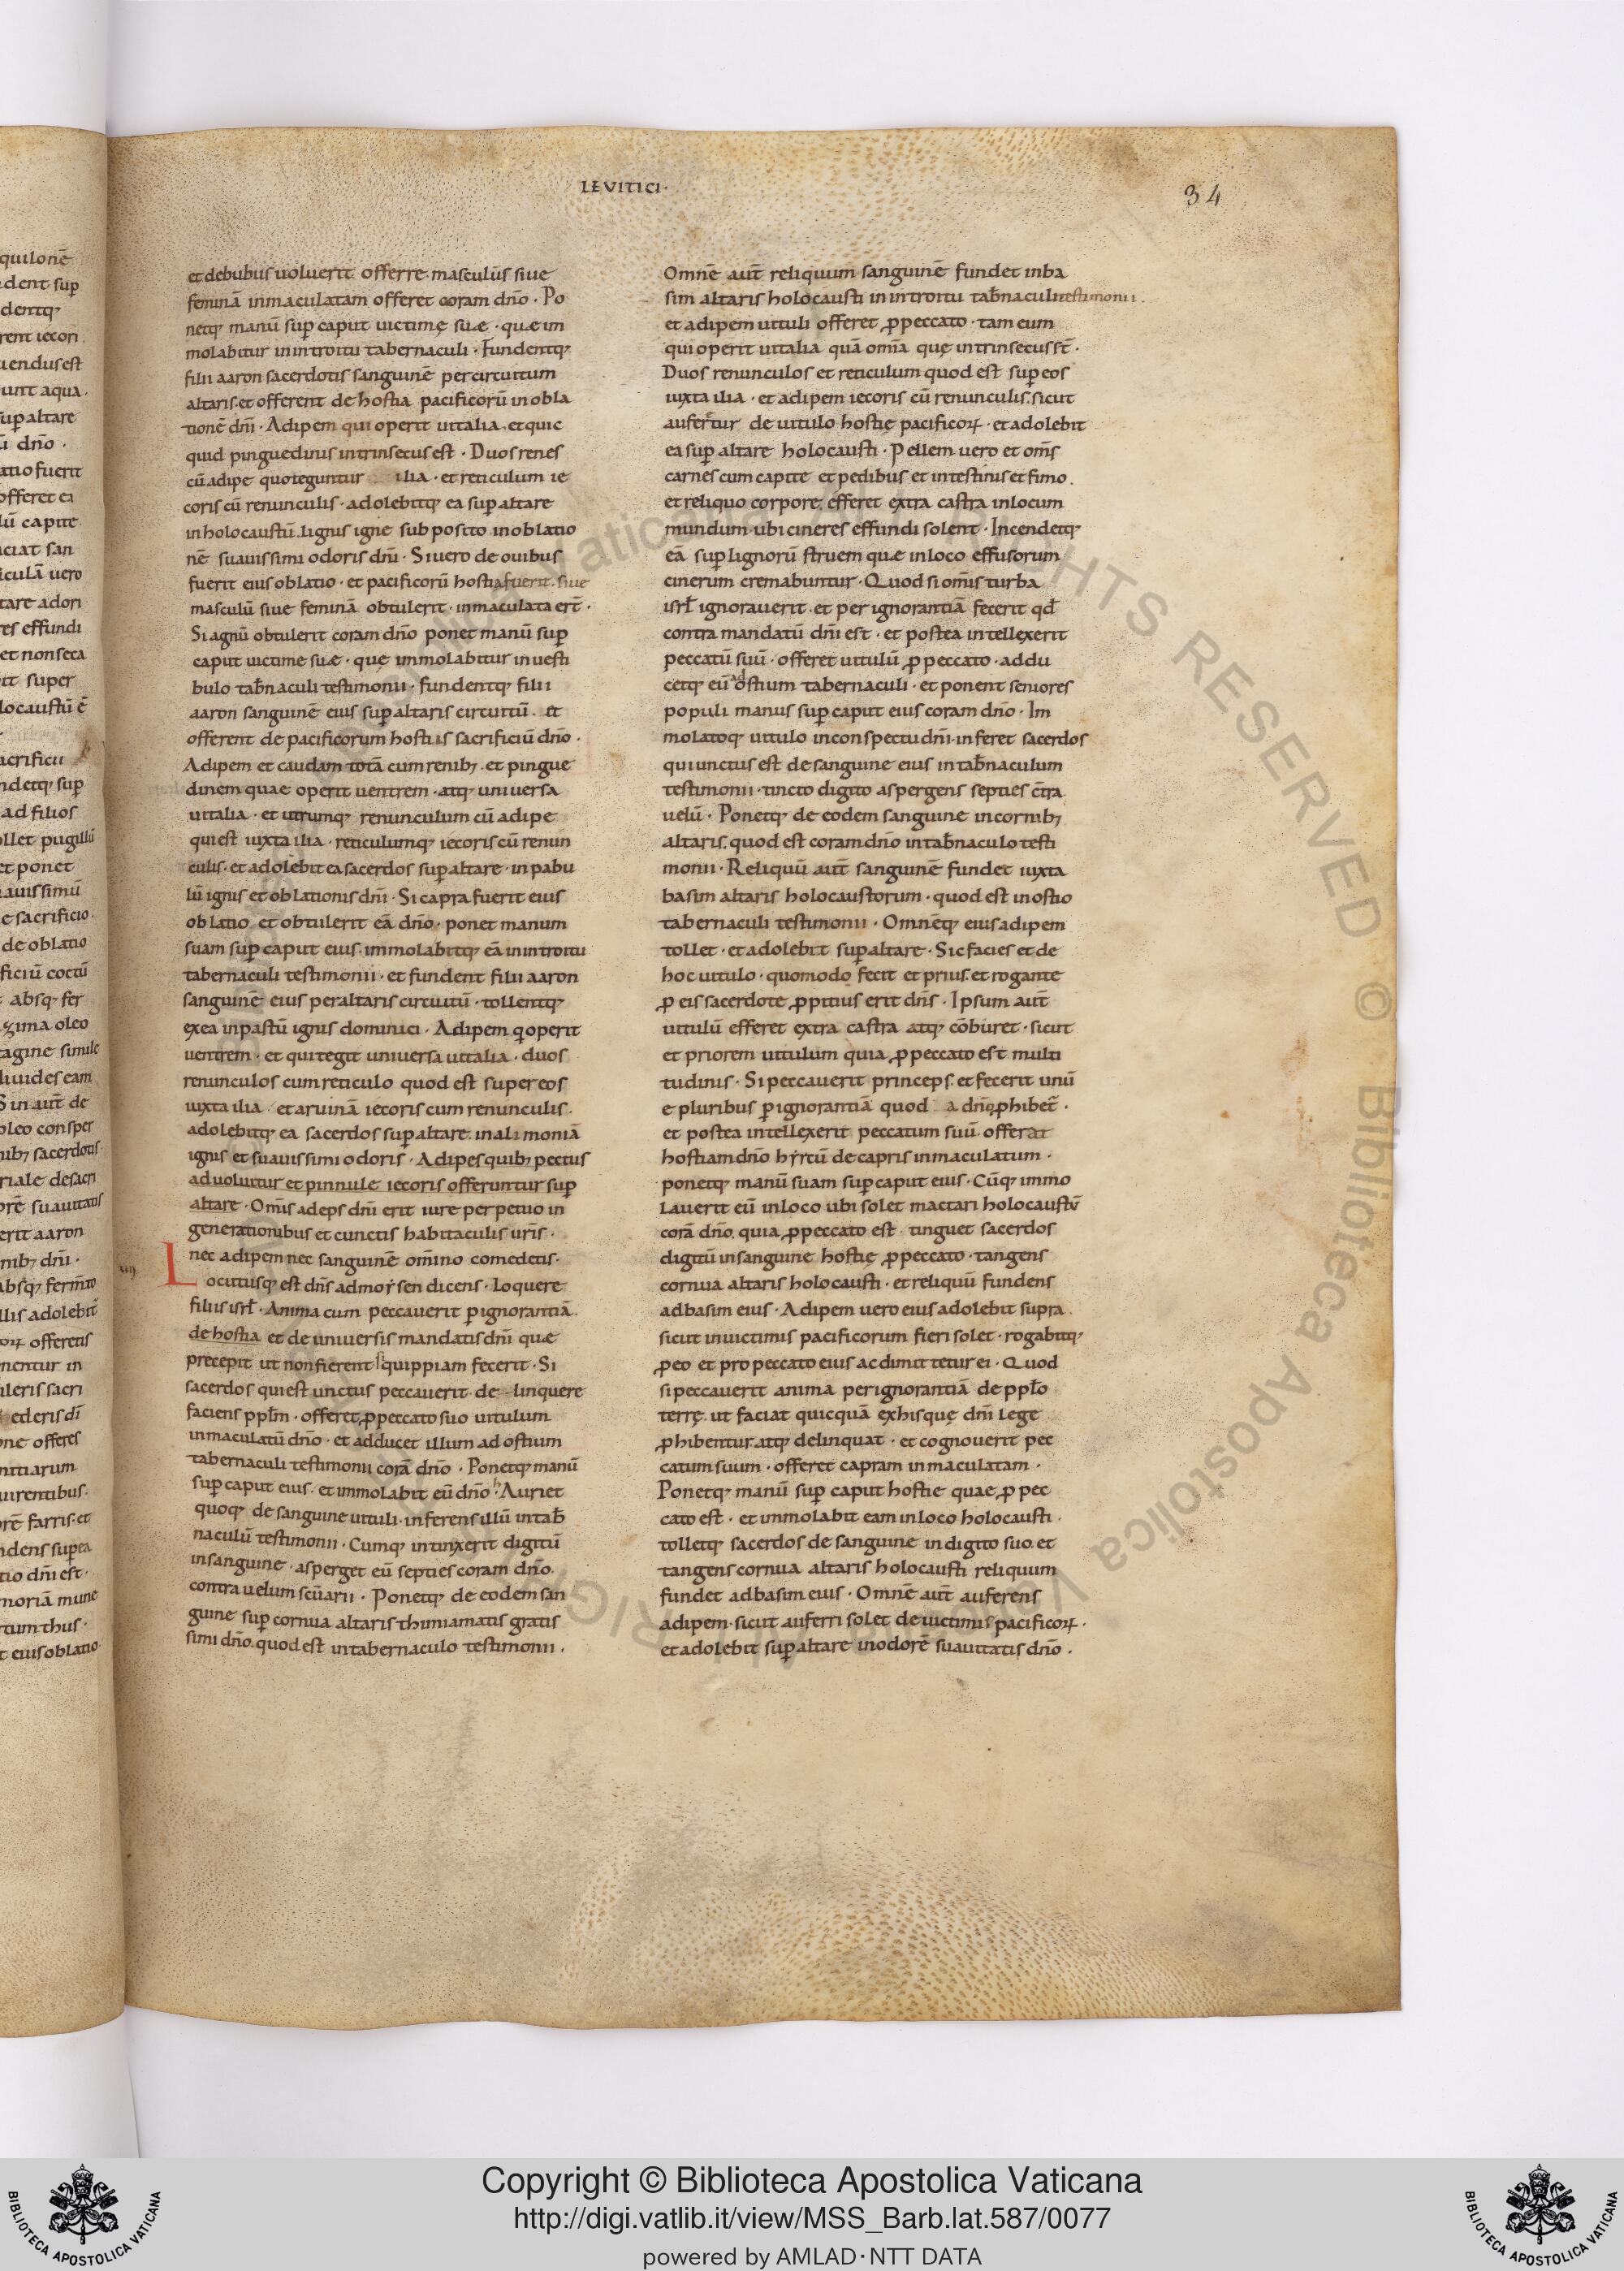 LEVITICI·
34
et debubus uoluerit offerre. masculūs siue
feminā inmaculatam offeret coram dnō · Po
netq; manū sup caput uictimę suæ · quæ im
molabitur in introitu tabernaculi · Fundentq;
filii aaron sacerdotis sanguinē per circuitum
altaris. et offerent de hostia pacificorū in obla
tionē dnī · Adipem qui operit uitalia . et quic
quid pinguedinis intrinsecus est · Duos renes
cū adipe quo teguntur ilia · et reticulum ie
coris cū renunculis · adolebitq; ea sup altare
in holocaustū. lignis igne sub posito. in oblatio
nē suauissimi odoris dnī · Si uero de ouibus
fuerit eius oblatio · et pacificorū hostia fuerit. siue
masculū siue feminā obtulerit · inmaculata ert̄ ·
Si agnū obtulerit coram dnō ponet manū sup
caput uictime suæ · quę immolabitur in uesti
bulo tab̄naculi testimonii · fundentq; filii
aaron sanguinē eius sup altaris circuitū . et
offerent de pacificorum hostiis sacrificiū dnō ·
Adipem et caudam totā cum renib; . et pingue
dinem quae operit uentrem · atq; uniuersa
uitalia · et utrumq; renunculum cū adipe
qui est iuxta ilia · reticulumq; iecoris cū renun
culis · et adolebit ea sacerdos sup altare · in pabu
lū ignis et oblationis dnī · Si capra fuerit eius
oblatio et obtulerit eā dnō · ponet manum
suam sup caput eius · immolabitq; eā in introitu
tabernaculi testimonii · et fundent filii aaron
sanguinē eius per altaris circuitū · tollentq;
ex ea in pastū ignis dominici · Adipem q operit
uentrem · et qui tegit uniuersa uitalia · duos
renunculos cum reticulo quod est super eos
iuxta ilia . et aruinā iecoris cum renunculis ·
adolebitq; ea sacerdos sup altare. in alimoniā
ignis et suauissimi odoris · Adipes quib; pectus
aduoluitur et pinnule iecoris offeruntur sup
altare · Omīs adeps dnī erit iure perpetuo in
generationibus et cunctis habitaculis urīs ·
nec adipem nec sanguinē omīno comedetis·
Locutusq; est dn̄s ad moẏsen dicens · loquere
filiis isrł · Anima cum peccauerit p ignorantiā.
de hostia et de uniuersis mandatis dnī quæ
precepit ut non fierent quippiam fecerit · Si
sacerdos qui est unctus peccauerit de linquere
faciens pplm̄ · offeret p peccato suo uitulum
inmaculatū dnō · et adducet illum ad ostium
tabernaculi testimonii corā dnō · Ponetq; manū
sup caput eius · et immolabit eū dnō · hAuriet
quoq; de sanguine uituli · inferens illū in tab̄
naculū testimonii · Cumq; intinxerit digitū
in sanguine · asperget eū septies coram dnō.
contra uelum scūarii · Ponetq; de eodem san
guine sup cornua altaris thimiamatis gratis
simi dnō. quod est in tabernaculo testimonii .
Omnē aut̄ reliquum sanguinē fundet in ba
sim altaris holocausti in introitu tab̄naculi testimonii .
et adipem uituli offeret p peccato · tam eum
qui operit uitalia quā omīa quę intrinsecus st̄ ·
Duos renunculos et reticulum quod est sup eos
iuxta ilia · et adipem iecoris cū renunculis. sicut
aufertur de uitulo hostię pacificoꝝ · et adolebit
ea sup altare holocausti · Pellem uero et om̄s
carnes cum capite et pedibus et intestinis et fimo .
et reliquo corpore. efferet extra castra in locum
mundum · ubi cineres effundi solent · Incendetq;
eā sup lignorū struem quæ in loco effusorum
cinerum cremabuntur · Quod si omīs turba
isrł ignorauerit . et per ignorantiā fecerit qd̄
contra mandatū dnī est · et postea intellexerit
peccatū suū · offeret uitulū p peccato · addu
cetq; eū ad ostium tabernaculi · et ponent seniores
populi manus sup caput eius coram dnō · Im
molatoq; uitulo in conspectu dnī · inferet sacerdos
qui unctus est de sanguine eius in tab̄naculum
testimonii · tincto digito aspergens septies c̄tra
uelū · Ponetq; de eodem sanguine in cornib;
altaris. quod est coram dnō in tab̄naculo testi
monii · Reliquū aut̄ sanguinē fundet iuxta
basim altaris holocaustorum · quod est in ostio
tabernaculi testimonii · Omnēq; eius adipem
tollet · et adolebit sup altare · Sic facies et de
hoc uitulo · quomodo fecit et prius. et rogante
p eis sacerdote p pitius erit dn̄s · Ipsum aut̄
uitulū efferet extra castra atq; cōburet · sicut
et priorem uitulum quia p peccato est multi
tudinis · Si peccauerit princeps. et fecerit unū
e pluribus p ignorantiā quod a dnō phibet̄ ·
et postea intellexerit peccatum suū. offerat
hostiam dnō hẏrcū de capris inmaculatum ·
ponetq; manū suam sup caput eius · Cūq; immo
lauerit eū in loco ubi solet mactari holocaustū
corā dnō. quia p peccato est · tinguet sacerdos
digitū in sanguine hostię p peccato · tangens
cornua altaris holocausti · et reliquū fundens
ad basim eius · Adipem uero eius adolebit supra .
sicut in uictimis pacificorum fieri solet · rogabitq;
p eo et pro peccato eius ac dimittetur ei · Quod
si peccauerit anima per ignorantiā de ppłō
terrę. ut faciat quicquā ex his quę dnī lege
phibentur. atq; delinquat · et cognouerit pec
catum suum · offeret capram inmaculatam ·
Ponetq; manū sup caput hostie quae p pec
cato est · et immolabit eam in loco holocausti ·
tolletq; sacerdos de sanguine in digito suo. et
tangens cornua altaris holocausti reliquum
fundet ad basim eius · Omnē aut̄ auferens
adipem · sicut auferri solet de uictimis pacificoꝝ ·
et adolebit sup altare in odorē suauitatis dnō .
Copyright © Biblioteca Apostolica Vaticana
http://digi.vatlib.it/view/MSS_Barb.lat.587/0077
powered by AMLAD·NTT DATA